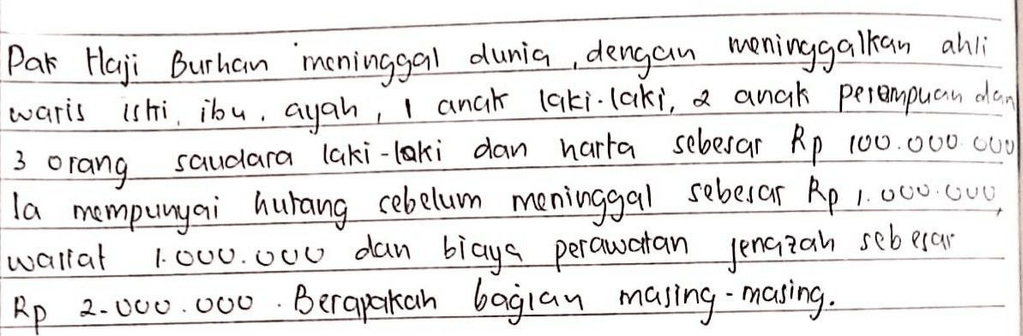 Pak Haji Burhan meninggal dunia, dengan meninggalkan ahli
waris istri, ibu, ayah, 1 anak laki-laki, 2 anak perempuan dan
3 orang saudara laki-laki dan harta sebesar Rp 100.000.000
Ia mempunyai hutang sebelum meninggal sebesar Rp 1.000.000,
wasiat 1.000.000 dan biaya perawatan jenazah sebesar
Rp 2.000.000. Berapakah bagian masing-masing.